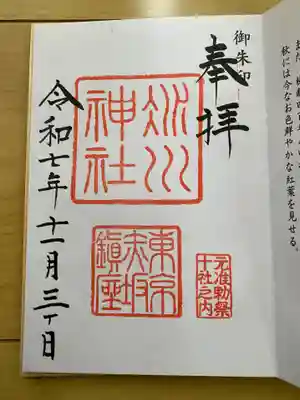 秋には今なお色鮮やかな紅葉を見せる。
御朱印
奉拝
氷川
神社
東京
赤坂
鎮座
元准勅祭
十社之内
令和七年十一月三十日